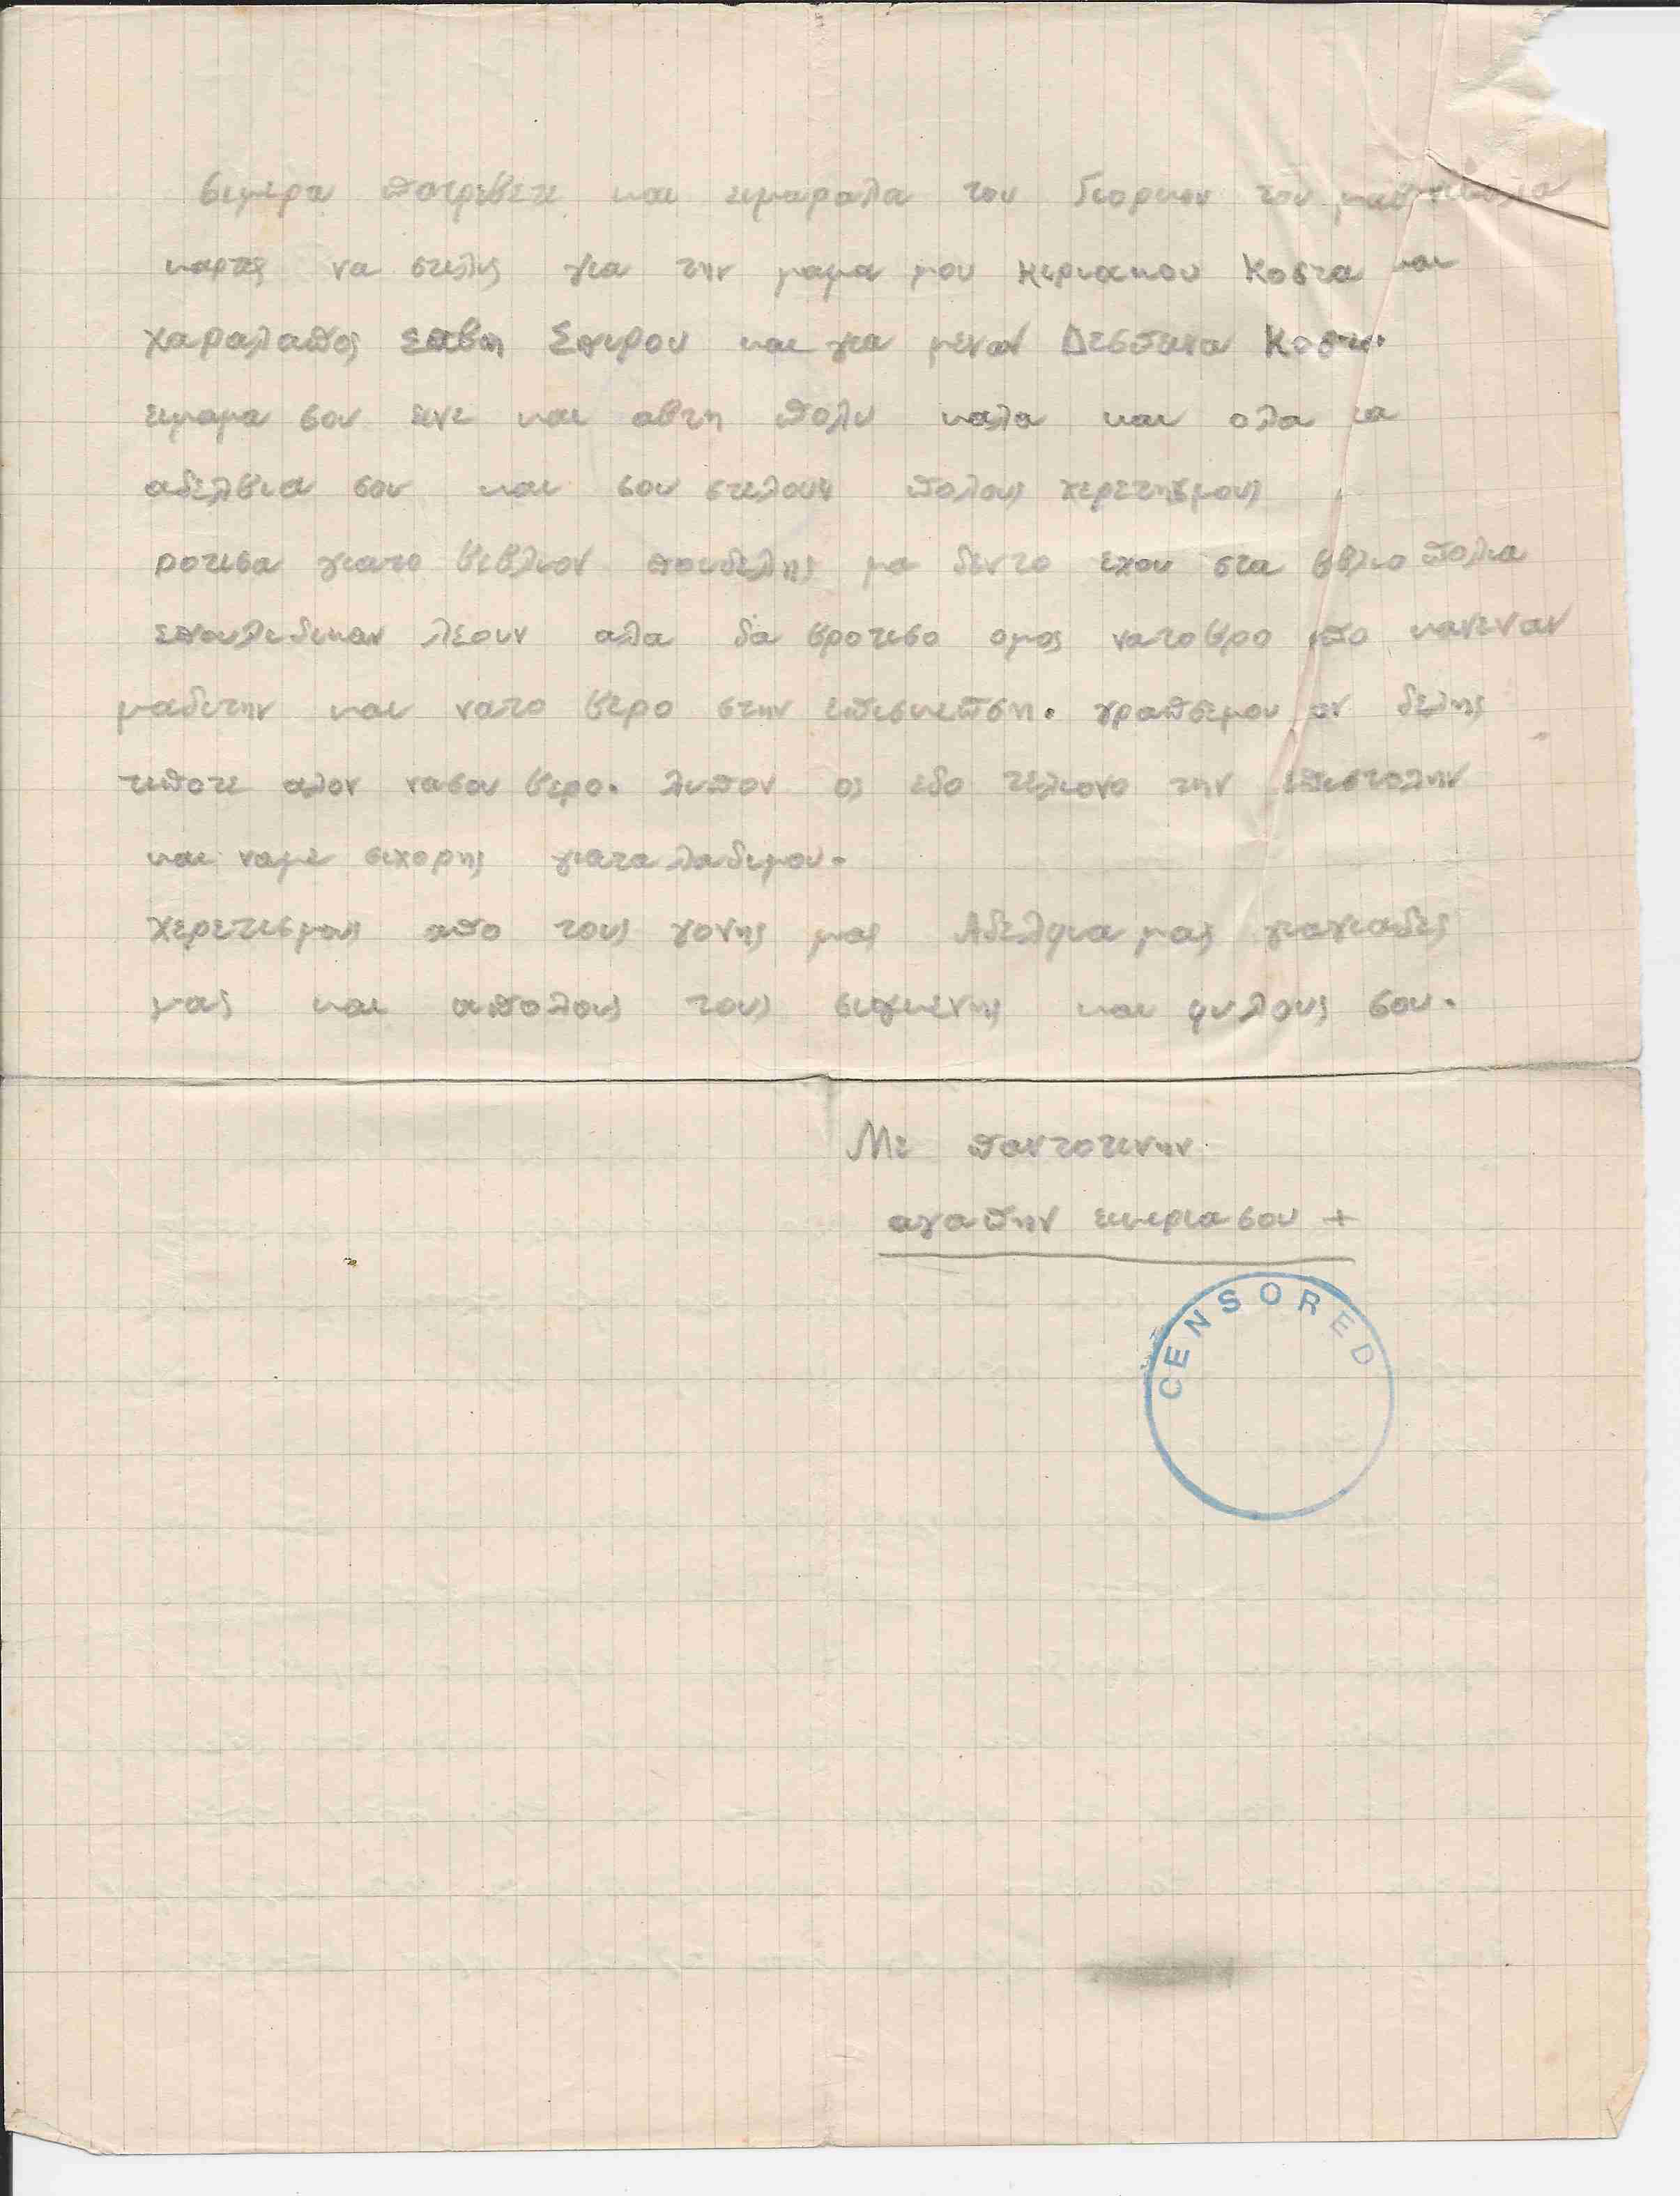 σιμερα πατρεβετε και ειμαραλα του Γιορκου του
καρτες να στελης για την μαμα μου Κιριακου Κοστα και
χαραλαπος Σαβη Σπιρου και για μεναν Δεσπινα Κοστα.
ειμαμα σου εινε και αβτη πολυ καλα και ολα τα
αδελβια σου και σου στελουν πολους χερετησμους
ροτισα γιατο βιβλιον πουθελης μα δεντο εχου στα βιβλιοπολια
επουληθικαν λεουν αλα θα βροτισο ομος νατοβρο απο κανεναν
μαθιτην και νατο βερο στην επισκεπση. γραπσεμου αν θελης
τιποτε αλον νασου βερο. λιπον ος εδο τελιονο την επιστολην
και ναμε σιχορης γιατα λαθιμου.
χερετισμους απο τους γονης μας Αδελφια μας γιαγιαδες
μας και απολους τους συγκενης και φυλους σου.
Με παντοτινην
αγαπην εικερια σου +
CENSORED